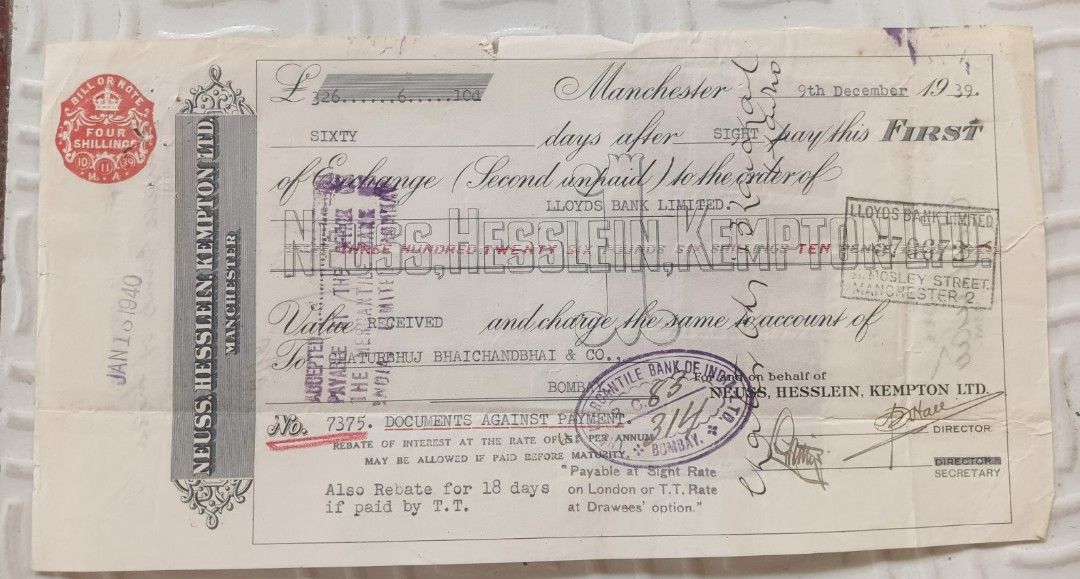 BILL OR NOTE
FOUR
SHILLINGS
10 11 39
M.A.
NEUSS, HESSLEIN, KEMPTON LTD.
MANCHESTER
JAN 10 1940
£ 326......6.....10d
Manchester 9th December 1939.
SIXTY days after SIGHT pay this FIRST
of Exchange (Second unpaid) to the order of
LLOYDS BANK LIMITED.
NEUSS, HESSLEIN, KEMPTON LTD.
THREE HUNDRED TWENTY SIX POUNDS SIX SHILLINGS TEN PENCE
LLOYDS BANK LIMITED
MOSLEY STREET
MANCHESTER 2
Value RECEIVED and charge the same to account of
To CHATURBHUJ BHAICHANDBHAI & CO.,
BOMBAY.
ACCEPTED
PAYABLE AT THE
THE MERCANTILE BANK
INDIA LIMITED
MERCANTILE BANK OF INDIA LTD.
83
314
BOMBAY.
For and on behalf of
NEUSS, HESSLEIN, KEMPTON LTD.
DIRECTOR
DIRECTOR
SECRETARY
No. 7375. DOCUMENTS AGAINST PAYMENT.
REBATE OF INTEREST AT THE RATE OF PER ANNUM
MAY BE ALLOWED IF PAID BEFORE MATURITY.
Also Rebate for 18 days
if paid by T.T.
"Payable at Sight Rate
on London or T.T. Rate
at Drawees' option."